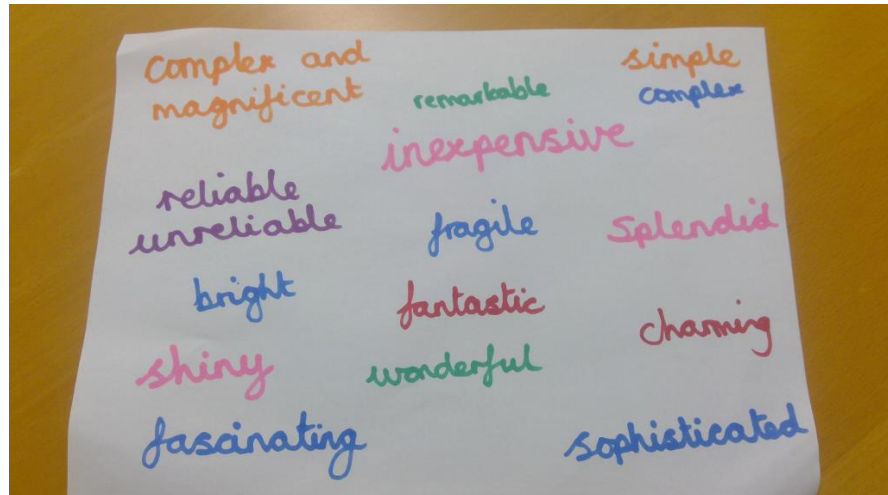 complex and
magnificent
remarkable
simple
complex
inexpensive
reliable
unreliable
fragile
splendid
bright
fantastic
charming
shiny
wonderful
fascinating
sophisticated